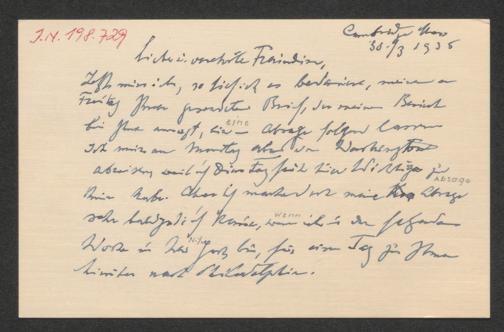 I.N. 198.729
Cambridge Mass
30./3 1936
Liebe u. verehrte Freundin,
Jetzt muss ich, so ich es bedauere, meinem
Freitag Ihnen gesendeten Brief, der meinen Besuch
bei Ihnen ansagt, eine Absage folgen lassen
Ich muss am Montag abend von Washington
abreisen, weil ich Dienstag früh hier Wichtiges zu
Absage
tun habe. Aber ich mache diese meine Absage
sehr bald gut ich komme, wenn ich in der folgenden
Woche in New York bin, für einen Tag zu Ihnen
hinüber nach Philadelphia.